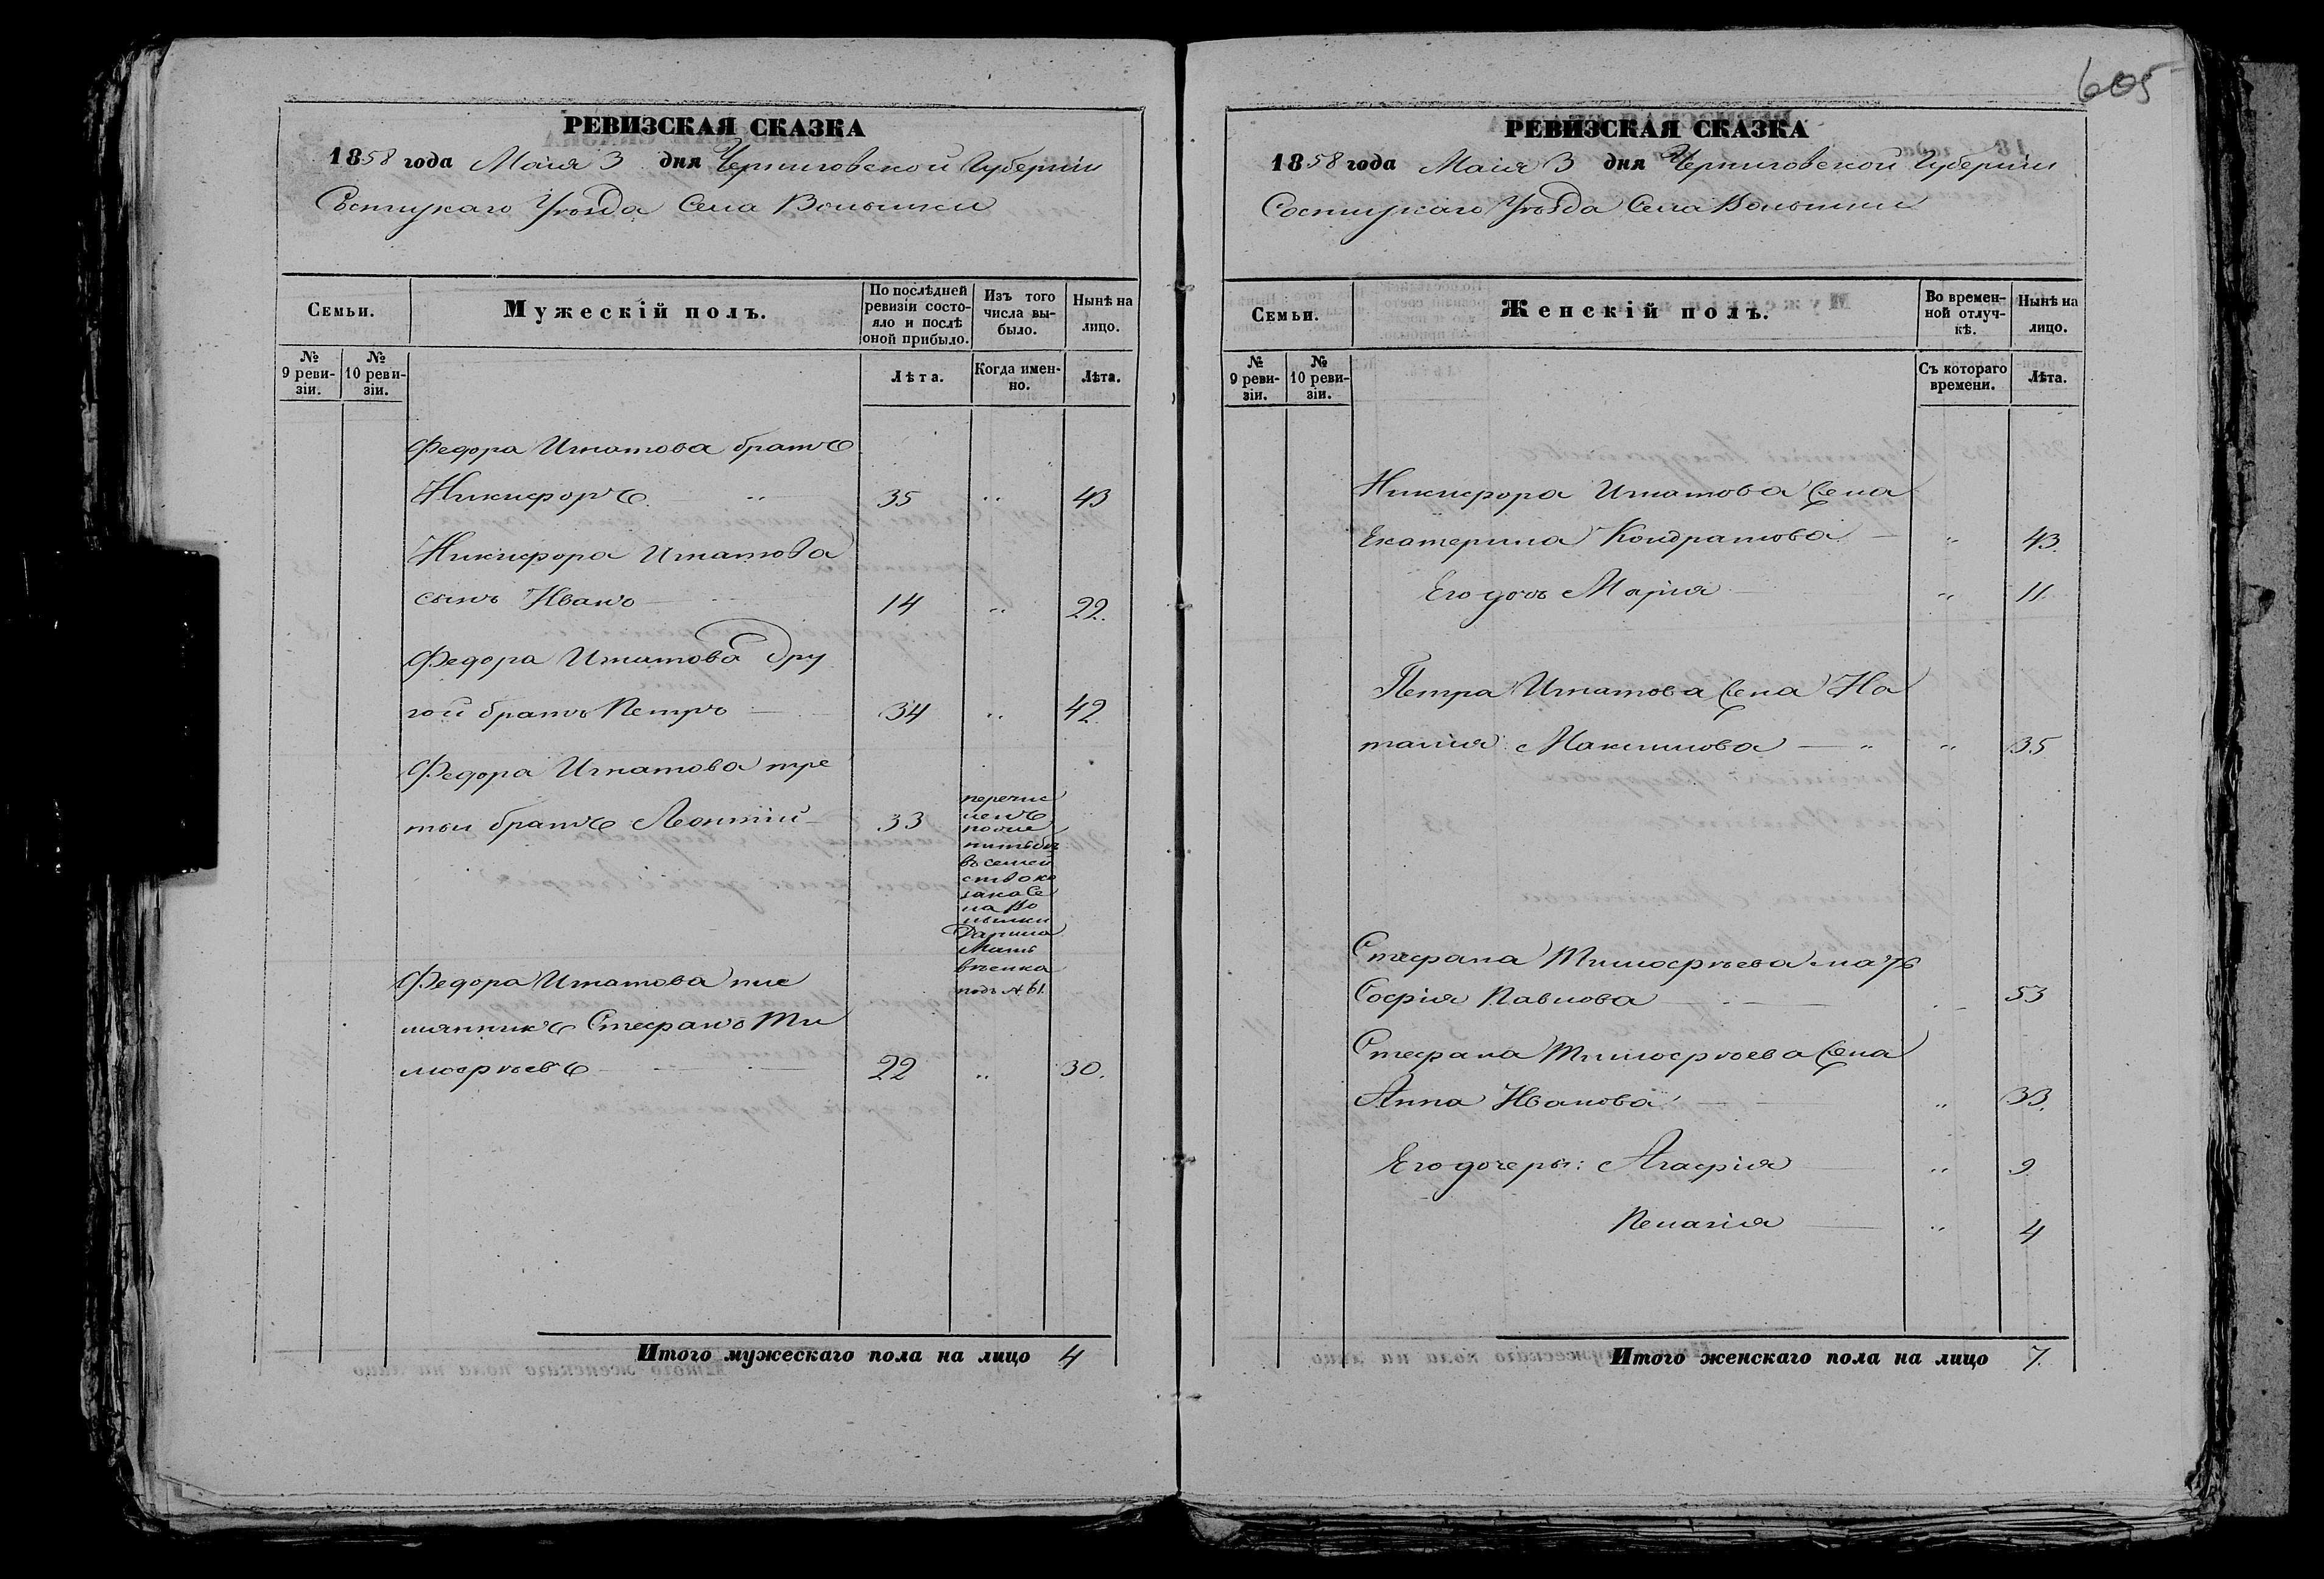 605
РЕВИЗСКАЯ СКАЗКА
1858 года Маія 3 дня Черниговской Губерніи
Сосницкаго Уѣзда Села Волынки
Семьи.
Мужескій полъ.
По послѣдней ревизіи состояло и послѣ оной прибыло.
Изъ того числа выбыло.
Нынѣ на лицо.
№ 9 ревизіи.
№ 10 ревизіи.
Лѣта.
Когда именно.
Лѣта.
Федора Игнатова братъ
Никифоръ 35 „ 43
Никифора Игнатова
сынъ Иванъ 14 „ 22.
Федора Игнатова дру
гой братъ Петръ 34 „ 42.
Федора Игнатова тре
тый братъ Леонтій 33
перечис
ленъ
въ семей
ство ко
зака Се
ла Во
лынки
Данила
Мат
вѣенка
подъ № 61.
Федора Игнатова пле
мянникъ Стефанъ Ти
мофѣевъ 22 „ 30.
Итого мужескаго пола на лицо 4
РЕВИЗСКАЯ СКАЗКА
1858 года Маія 3 дня Черниговской Губерніи
Сосницкаго Уѣзда Села Волынки
Семьи.
Женскій полъ.
Во временной отлучкѣ.
Нынѣ на лицо.
№ 9 ревизіи.
№ 10 ревизіи.
Съ котораго времени.
Лѣта.
Никифора Игнатова жена
Екатерина Кондратова „ 43.
Его дочь Марія „ 11.
Петра Игнатова жена На
талия Максимова „ „ 35
Стефана Тимофѣева мать
Софія Павлова 53
Стефана Тимофѣева жена
Анна Иванова „ 33.
Его дочеры: Агафія „ 9.
Пелагія „ 4
Итого женскаго пола на лицо 7.